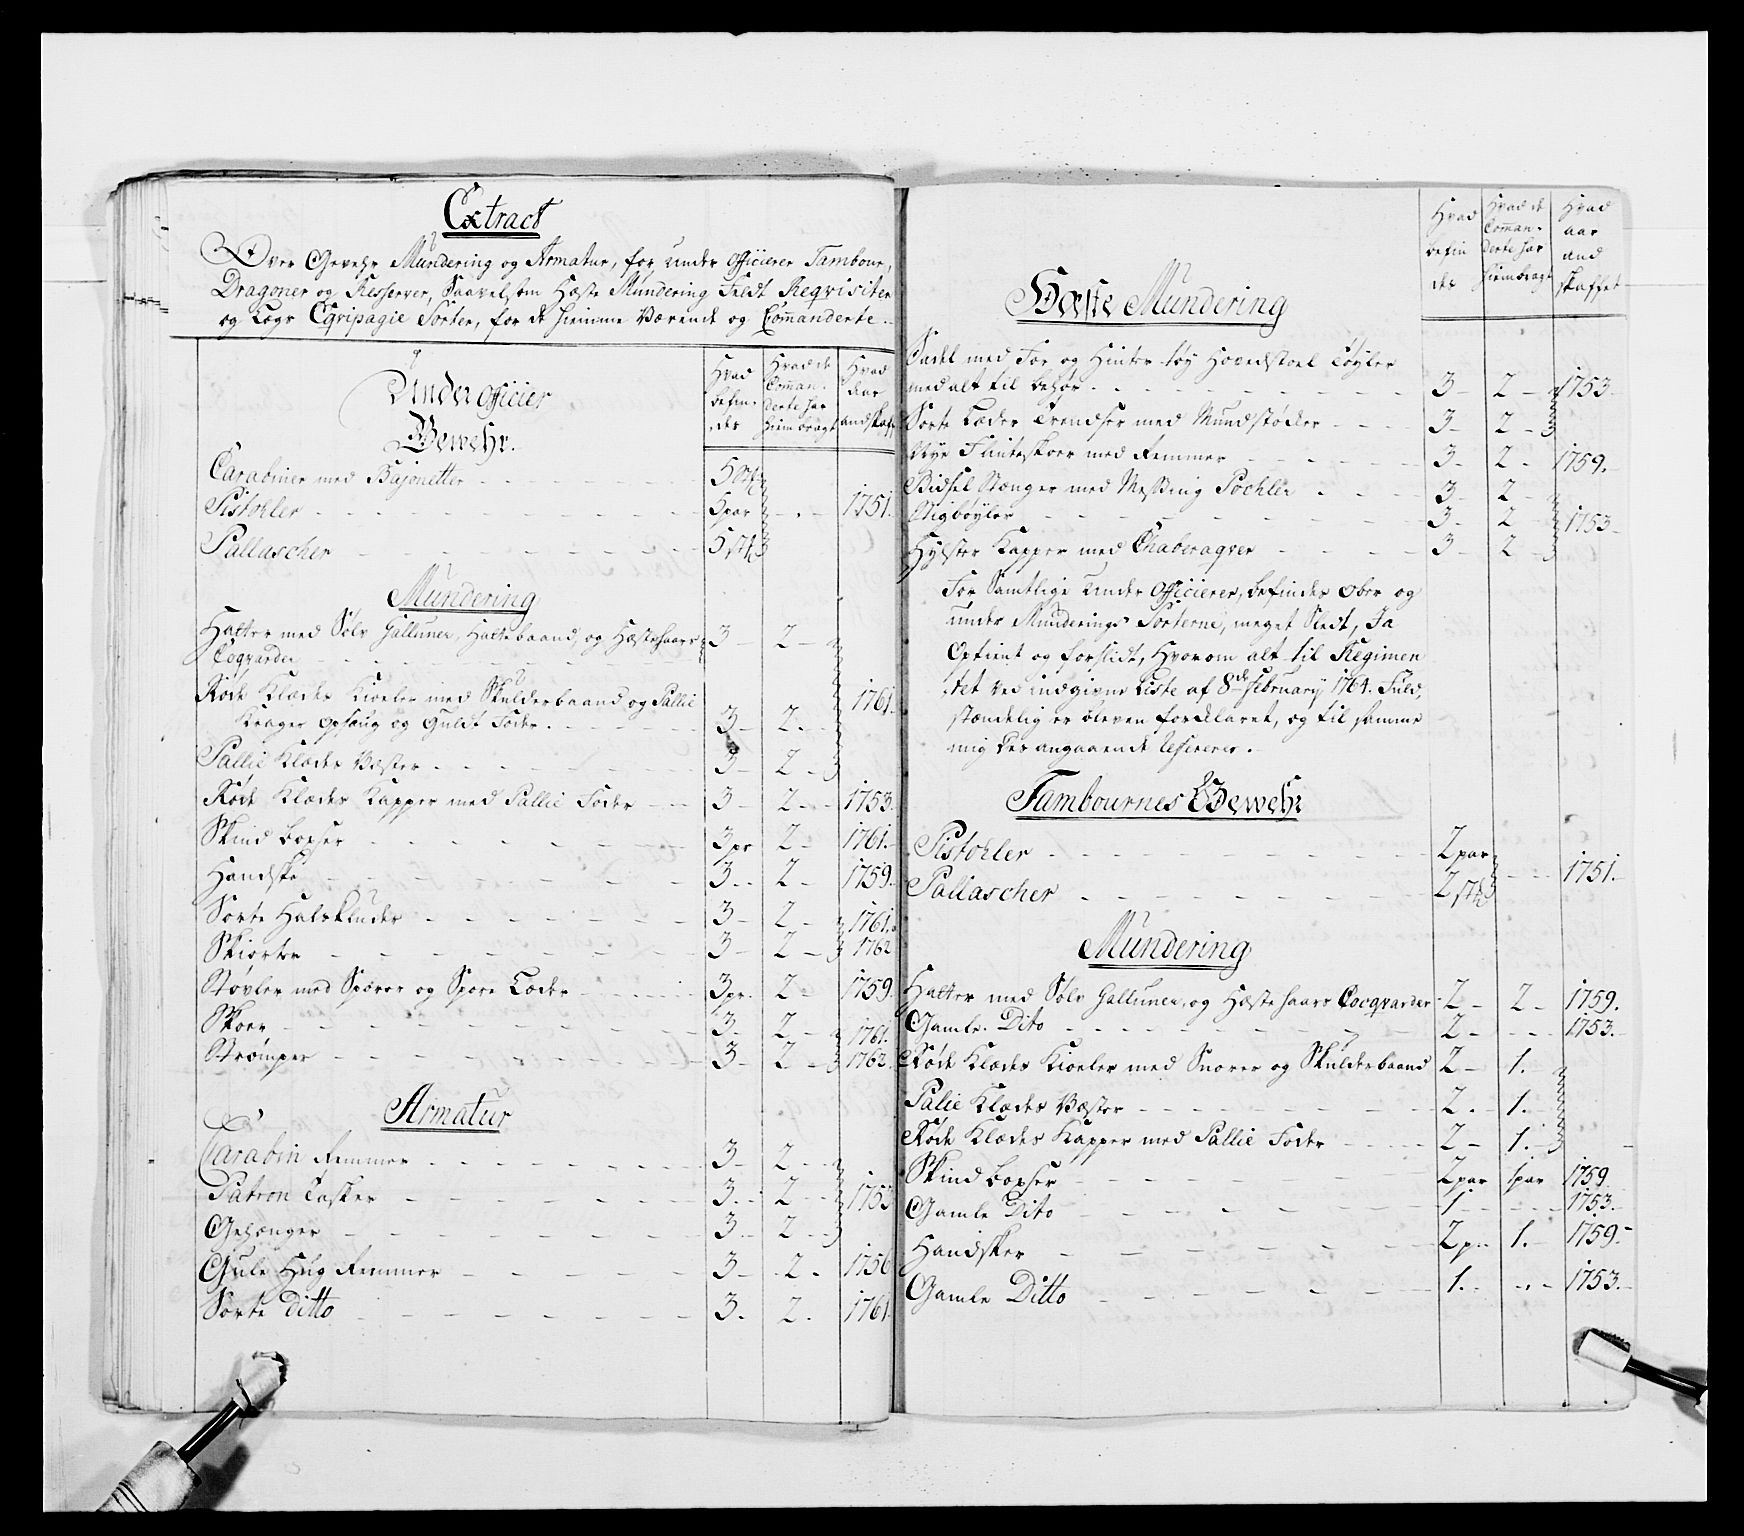 Extract
Over Gevehr Mundering og Armatur, for under officierer Tambour,
Dragoner og Resserver, Saavelsom Hæste Mundering Feldt Reqvisiter
og Togs Eqvipagie Sorter, for de hiemme Værende og Commanderte
Under officier
Gewehr.
Hvad befin-des
Hvad de Comman-derte har hiembragt
Hvad Aar andskaffet
Carabiner med Bajonetter - - - 5 stk
Pistohler - - - 5 par 1751.
Pallascher - - - 5 stk
Mundering
Hatter med Sølv Galluner, Hattebaand, og Hæstehaars 3 - 2 -
Coqvarder - - -
Røde Klædes Kioeler med Skulderbaand og Pallie 1761.
Krager opslaug og Guldt Foder. - - - 3 - 2. -
Pallie Klædes Væster - - - 3 - 2 -
Røde Klædes Kapper med Pallie Foder - - 3 - 2 - - 1753.
Skind boxser - - - 3 pr 2 - 1761.
Handske - - - 3 - - 2 - 1759.
Sorte Halskluder - - - 3 - 2 - 1761.
Skiorter - - - 3 - 2 - 1762
Støvler med Sporer og Spore Læder - - - 3 pr. 2 - 1759.
Skoer - - - 3 - 2 - 1761.
Strømper - - - 3 - 2 - 1762.
Armatur
Carabin Remmer - - - 3 - 2 - -
Patron Tasker - - - 3. - 2 - - 1753
Gehænger - - - 3 - 2 - -
Gule Hug Remmer - - - 3 - 2 - 1756
Sorte Ditto - - - 3. 2. 1761
Hvad befin des
Hvad de Coman-derte har hiembragt
Hvad aar and skaffet
Hæste Mundering
Sadel med For og Hinter-tøy Hovedstoel Tøyler
med alt til behør - - - 3 - 2 - 1753.
Sorte Læder Trendser med Mundstøcker - - - 3 - 2 -
Nye Flinteskoer med Remmer - - - 3 - 2 - 1759.
Bidsel Stænger med Messing Pochler - - - 3 - 2 -
Stigbøyler - - - 3 - 2 - 1753
Hylster Kapper med Chaberaqver - - - 3 - 2 -
For Samtlige Under Officierer, befindes ober og
under Munderings Sorterne, meget Slett, Ja
Optient og forslidt, Hvorom alt til Regimen
tet ved indgivne Liste af 8de February 1764. Fuld,
stændelig er bleven forklaret, og til samme
mig der angaaende reffererer.
Tambournes Gewehr
Pistohler - - - 2 par
Pallascher - - - 2 stk - - - 1751.
Mundering
Hatter med Sølv Galluner, og Hæstehaars Cocqvarder 2 - 2 - 1759.
Gamle. Dito - - - 2 - - - - 1753.
Røde Klædes Kioeler med Snorer og Skulderbaand 2 - 1. -
Palie Klædes Væster - - - 2. - 1. -
Røde Klædes Kapper med Pallie Foder - - - 2 - 1. -
Skind boxser - - - 2 par 1 par 1759
Gamle Dito - - - 1 - - - - 1753.
Handsker - - - 2 p. - 1. - 1759. -
Gamle Ditto - - - 1. - - - - 1753. -